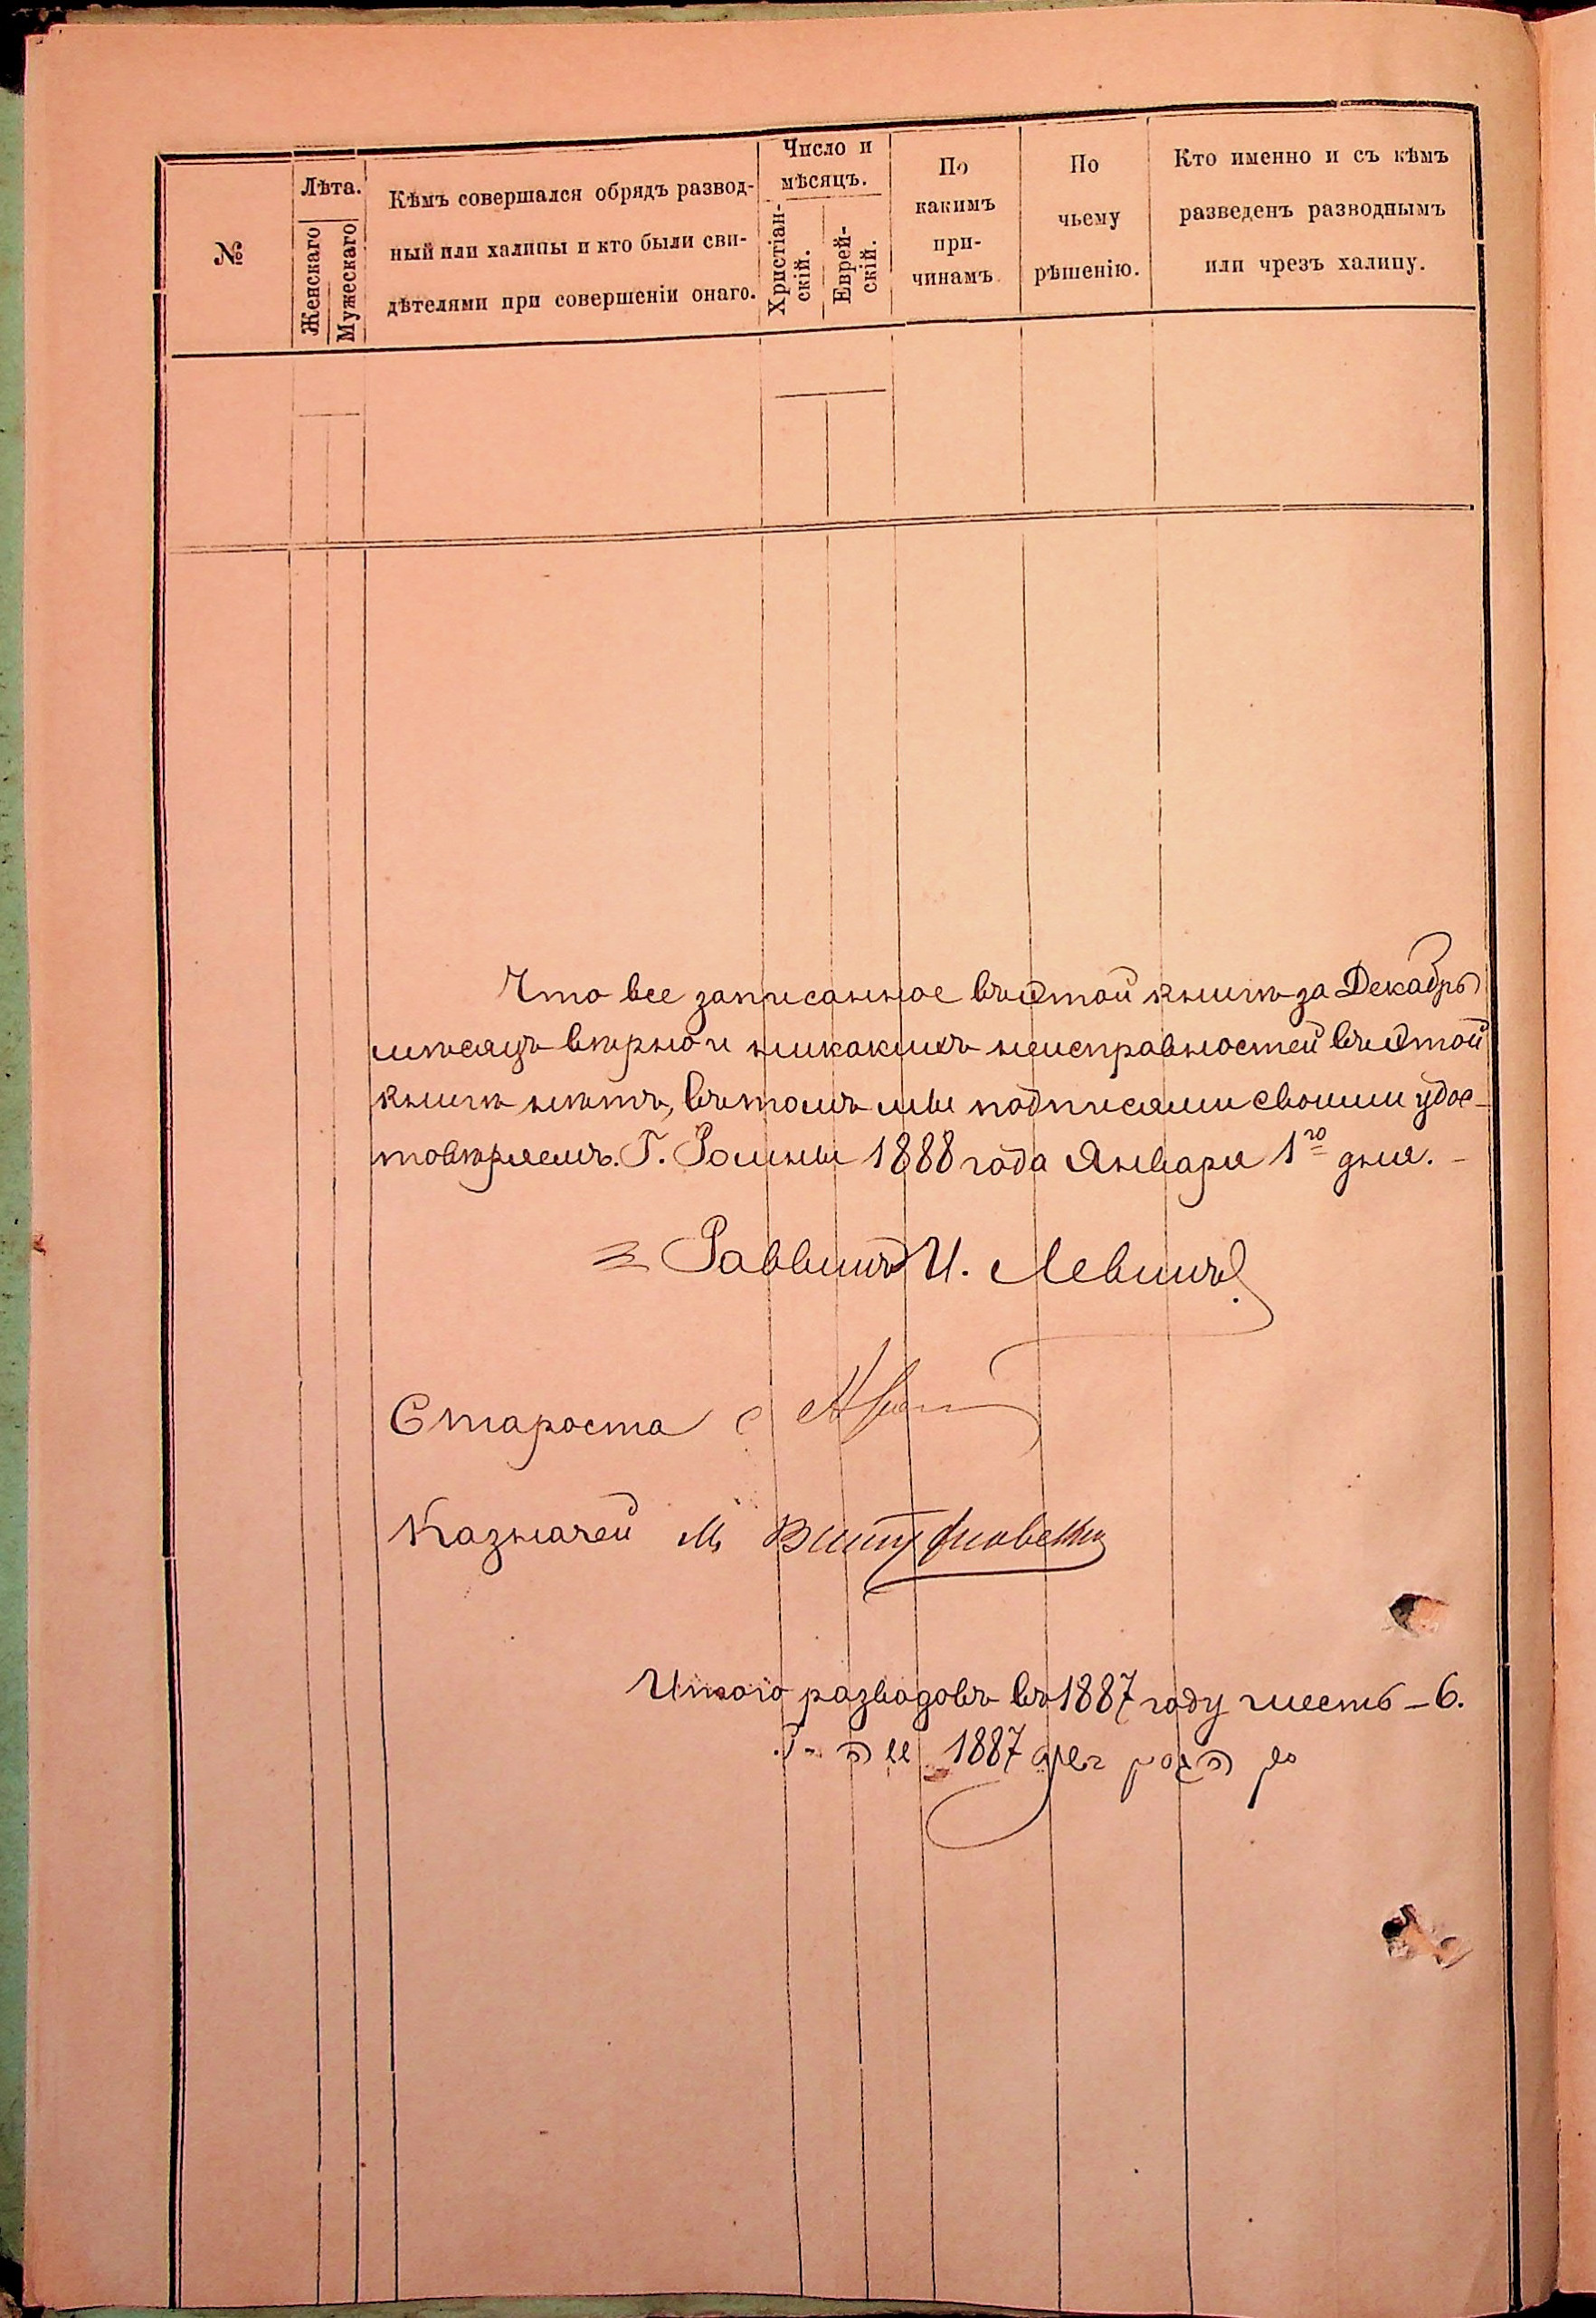 №
Лѣта.
Женскаго
Мужескаго
Кѣмъ совершался обрядъ развод-
ный или халицы и кто были сви-
дѣтелями при совершеніи онаго.
Число и
мѣсяцъ.
Христіан-
скій.
Еврей-
скій.
По
какимъ
при-
чинамъ.
По
чьему
рѣшенію.
Кто именно и съ кѣмъ
разведенъ разводнымъ
или чрезъ халицу.
Что все записанное въ этой книгѣ за Декабрь
мѣсяцъ вѣрно и никакихъ неисправностей въ этой
книгѣ нѣтъ, въ томъ мы подписями своими удос-
товѣряемъ. Г. Ромны 1888 года Января 1го дня. -
Раввинъ И. Левинъ
Староста
Казначей М
Итого разводовъ въ 1887 году шесть - 6.
1887